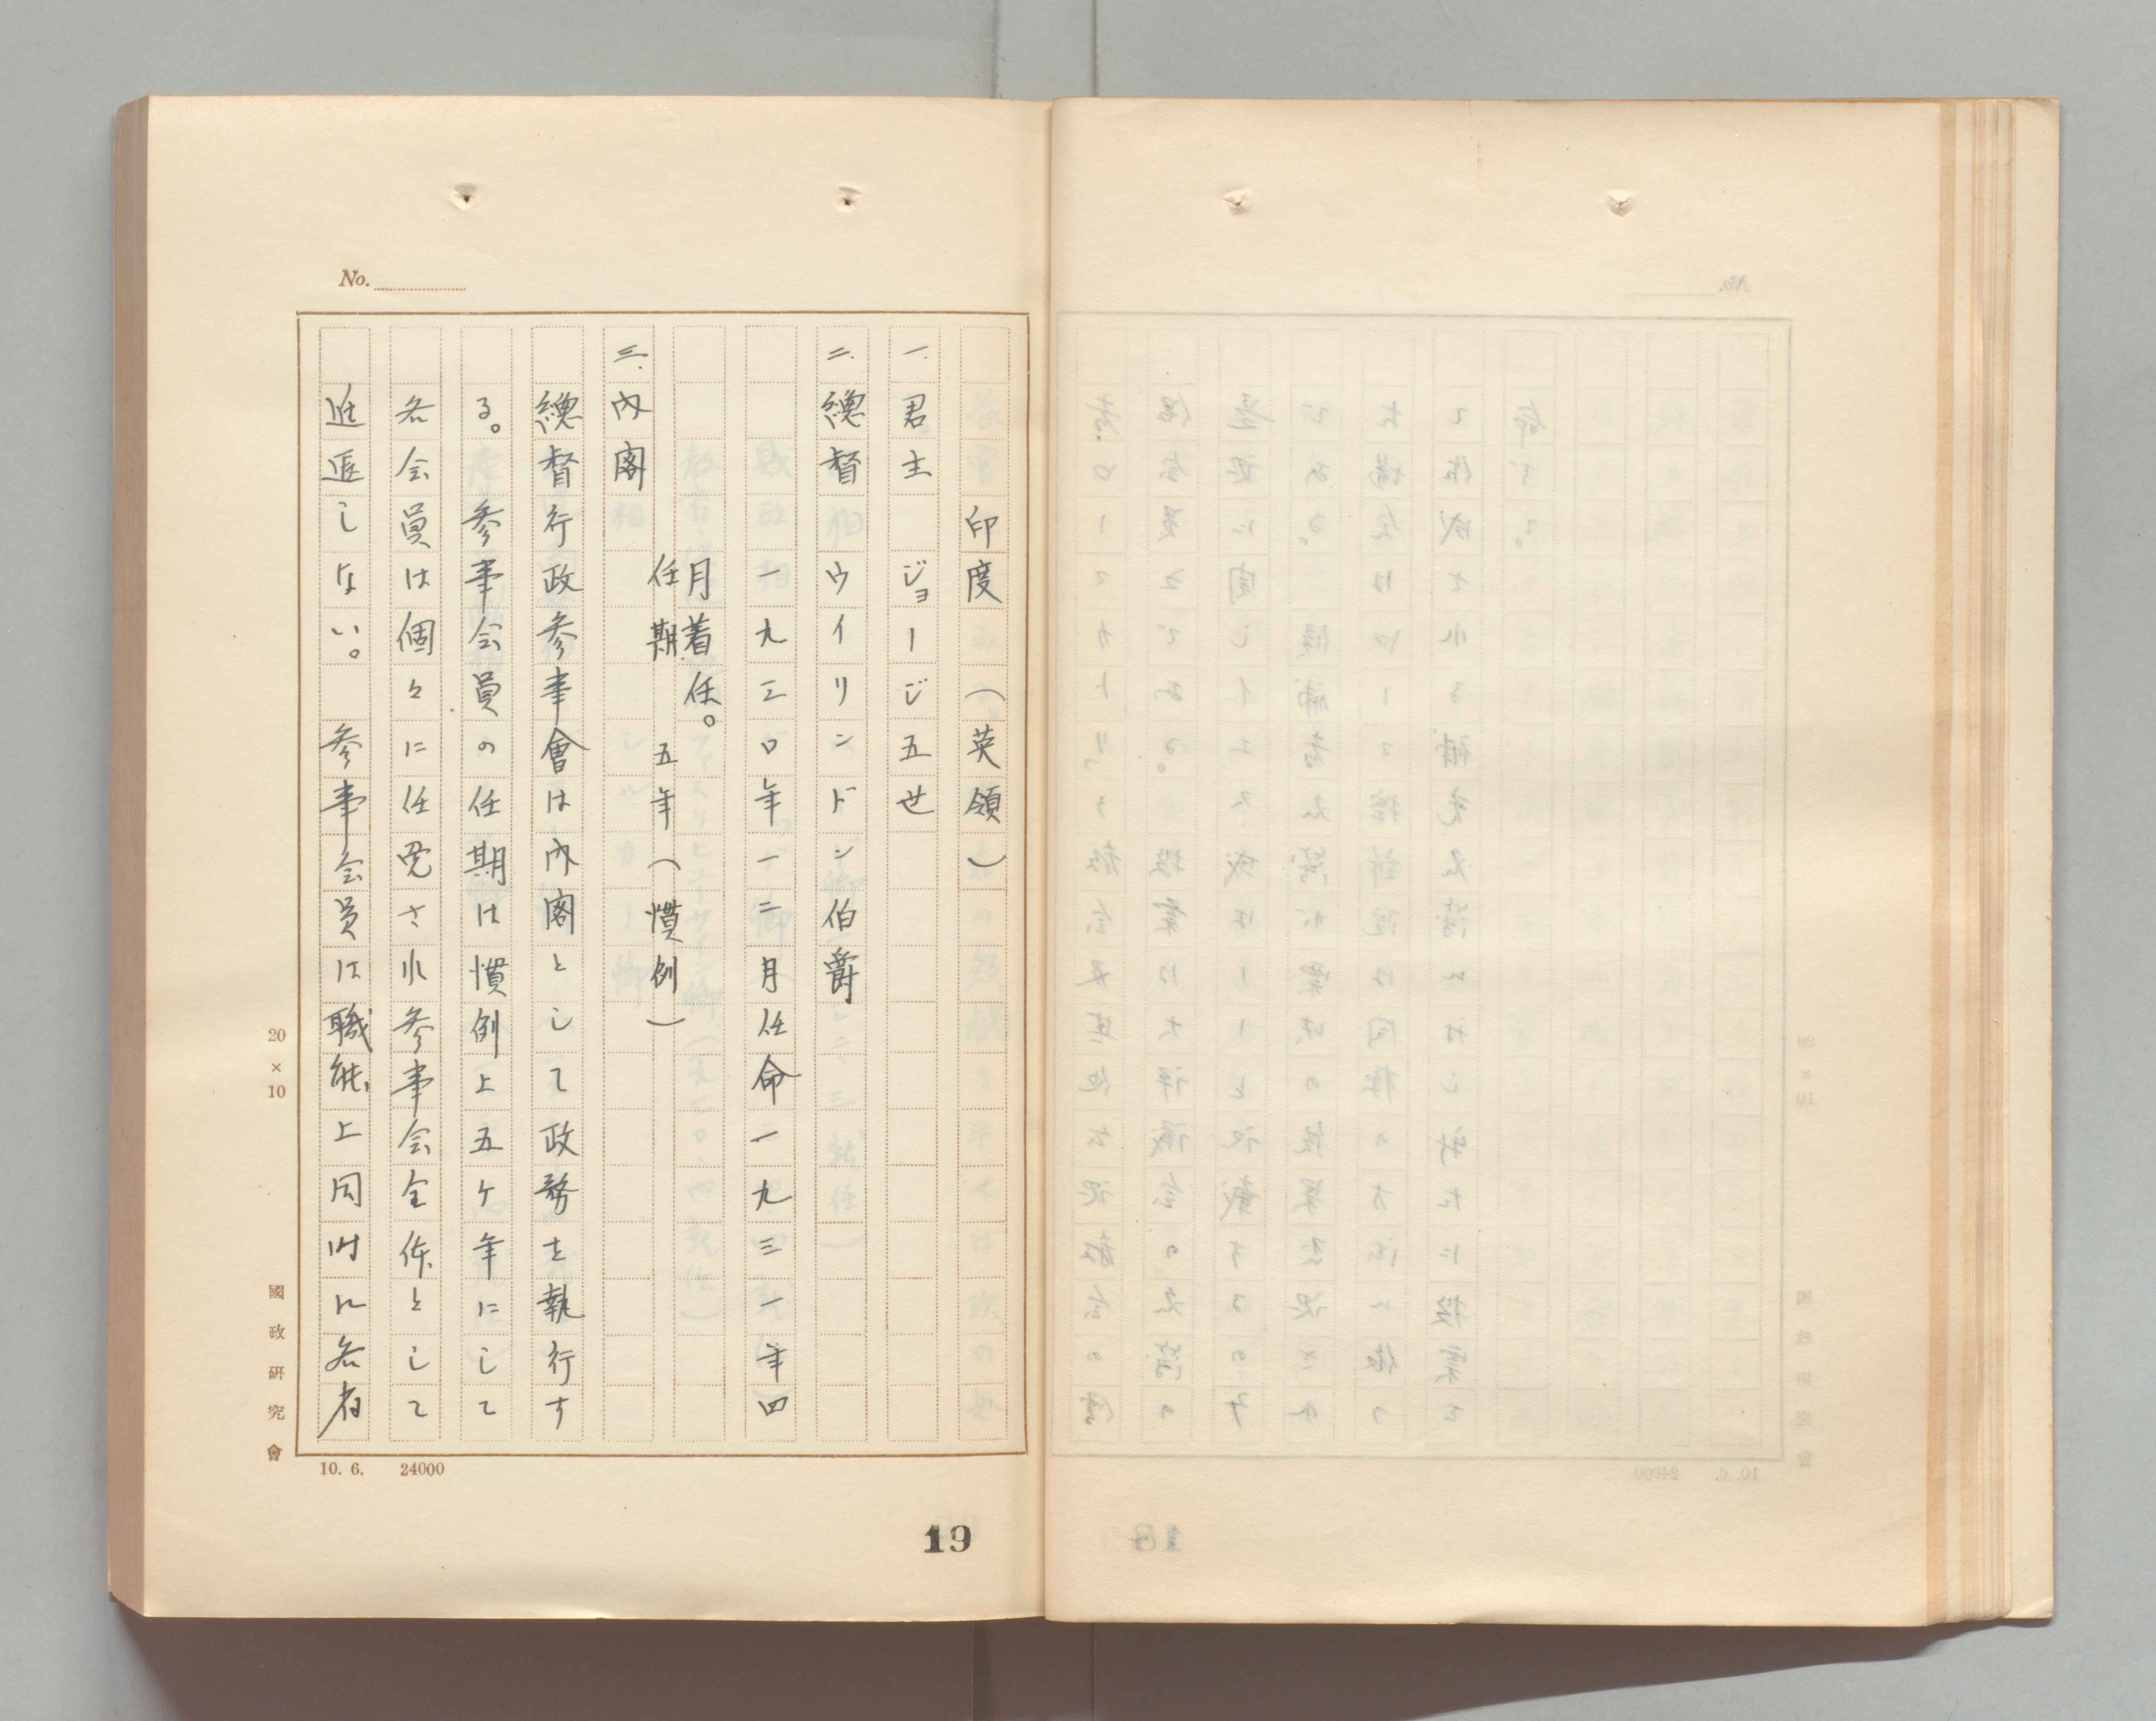 No.
印度(英領)
一.君主 ジョージ五世
二.總督 ウイリンドン伯爵
一九三〇年一二月任命一九三一年四
月着任。
任期 五年(慣例)
三.内閣
總督行政参事會は内閣として政務を執行す
る。参事会員の任期は慣例上五ケ年にして
各会員は個々に任免され参事会全体として
進退しない。 参事会員は職能上同時に各省
20×10
國政研究會
10. 6. 24000
19